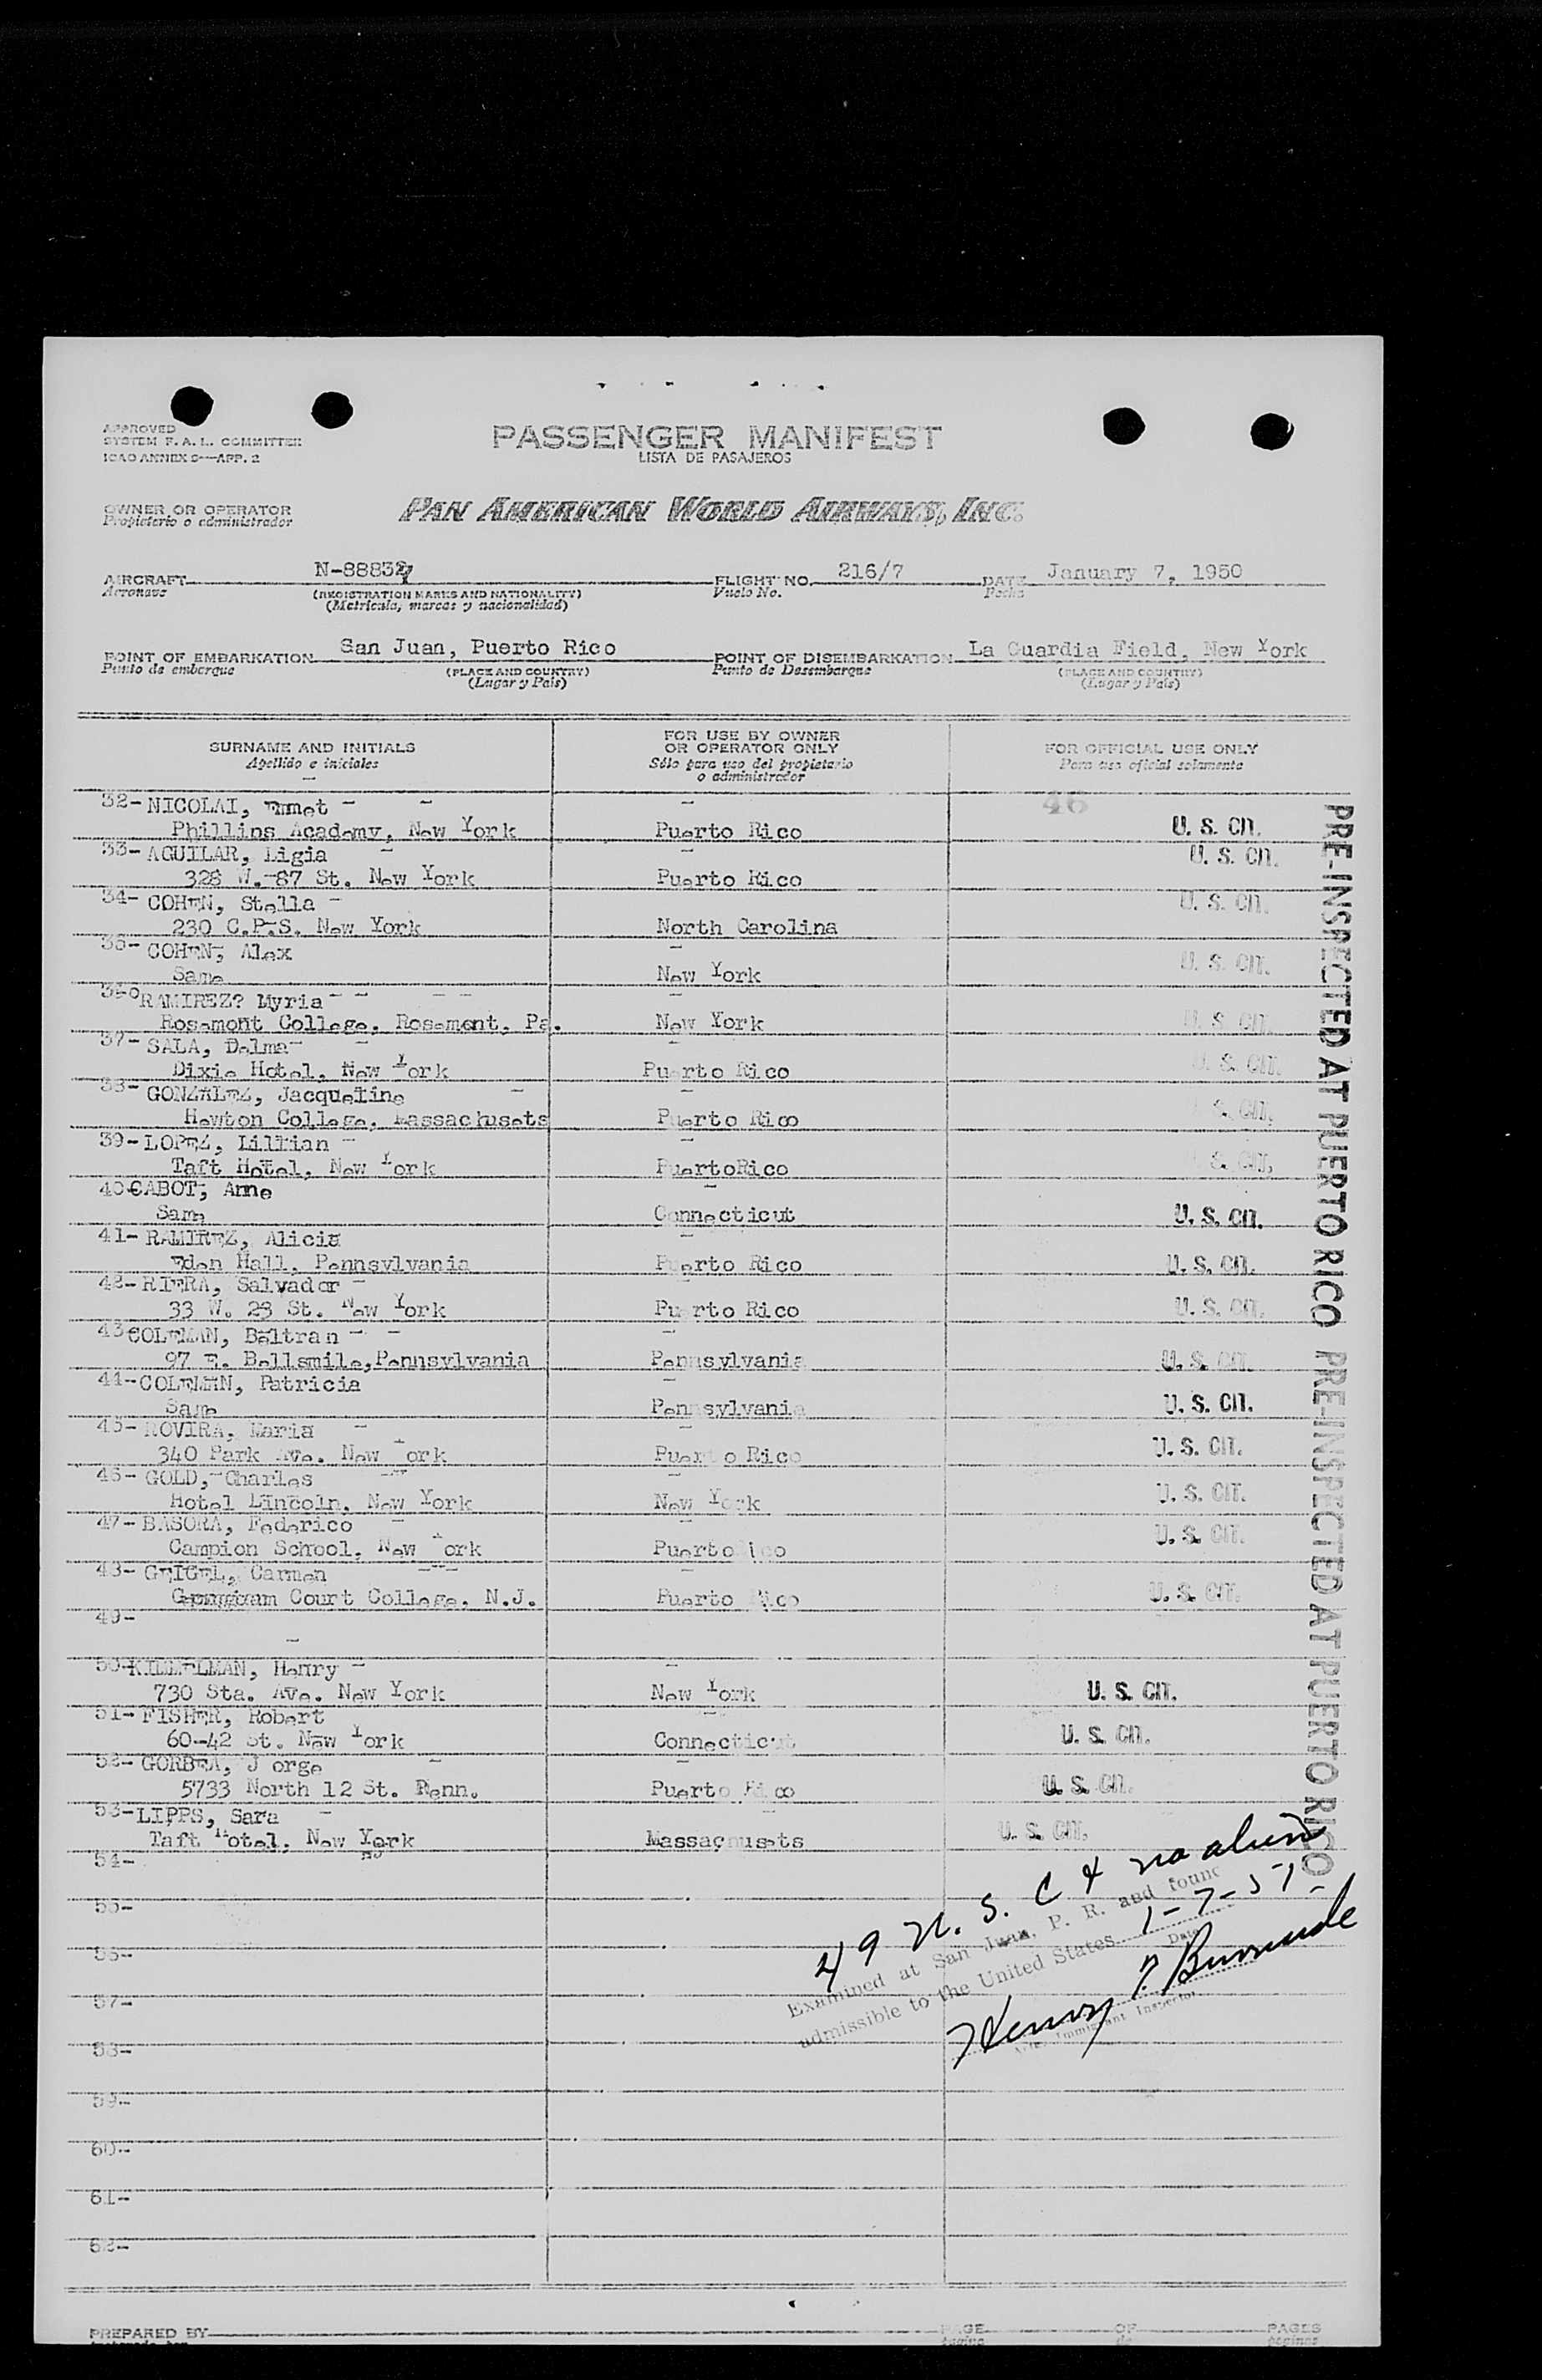 APPROVED
SYSTEM F. A. L. COMMITTEE
ICAO ANNEX 9—APP. 2
PASSENGER MANIFEST
LISTA DE PASAJEROS
OWNER OR OPERATOR
Propietario o administrador
PAN AMERICAN WORLD AIRWAYS, INC.
AIRCRAFT N-88837 FLIGHT NO. 216/7 DATE January 7, 1950
Aeronave (REGISTRATION MARKS AND NATIONALITY) Vuelo No. Fecha
(Matrícula, marcas y nacionalidad)
POINT OF EMBARKATION San Juan, Puerto Rico POINT OF DISEMBARKATION La Guardia Field, New York
Punto de embarque (PLACE AND COUNTRY) Punto de Desembarque (PLACE AND COUNTRY)
(Lugar y País) (Lugar y País)
SURNAME AND INITIALS FOR USE BY OWNER OR OPERATOR ONLY FOR OFFICIAL USE ONLY
Apellido e iniciales Sólo para uso del propietario o administrador Para uso oficial solamente
32- NICOLAI, Emmet 46
Phillips Academy, New York Puerto Rico U. S. CIT.
33- AGUILAR, Ligia U. S. CIT.
328 W.-87 St. New York Puerto Rico
34- COHEN, Stella U. S. CIT.
230 C.P.S. New York North Carolina
35- COHEN, Alex U. S. CIT.
Same New York
RAMIREZ? Myria
Rosemont College, Rosemont, Pa. New York U. S. CIT.
37- SALA, Delma U. S. CIT.
Dixie Hotel, New York Puerto Rico
38- GONZALEZ, Jacqueline U. S. CIT.
Hewton College, Massachusets Puerto Rico
39- LOPEZ, Lillian U. S. CIT.
Taft Hotel, New York PuertoRico
40 CABOT, Anne
Same Connecticut U. S. CIT.
41- RAMIREZ, Alicia
Eden Hall, Pennsylvania Puerto Rico U. S. CIT.
42- RIERA, Salvador
33 W. 23 St. New York Puerto Rico U. S. CIT.
43 COLEMAN, Beltran
97 E. Bellsmile, Pennsylvania Pennsylvania U. S. CIT.
44- COLEMAN, Patricia
Same Pennsylvania U. S. CIT.
45- ROVIRA, Maria
340 Park Ave. New York Puerto Rico U. S. CIT.
46- GOLD, Charles
Hotel Lincoln, New York New York U. S. CIT.
47- BASORA, Federico
Campion School, New York Puerto Rico U. S. CIT.
48- GEIGEL, Carmen
Court College, N.J. Puerto Rico U. S. CIT.
49-
50- Henry
730 5ta. Ave. New York New York U. S. CIT.
51- FISHER, Robert
60-42 St. New York Connecticut U. S. CIT.
52- GORBEA, Jorge
5733 North 12 St. Penn. Puerto Rico U. S. CIT.
53- LIPPS, Sara
Taft Hotel, New York Massachusets U. S. CIT.
54-
55-
56-
57-
58-
59-
60-
61-
62-
49 U. S. C & no alien
Examined at San Juan, P. R. and found
admissible to the United States 1-7-51
Date
Henry
Immigrant Inspector
PRE-INSPECTED AT PUERTO RICO
PRE-INSPECTED AT PUERTO RICO
PREPARED BY PAGE OF PAGES
página de páginas